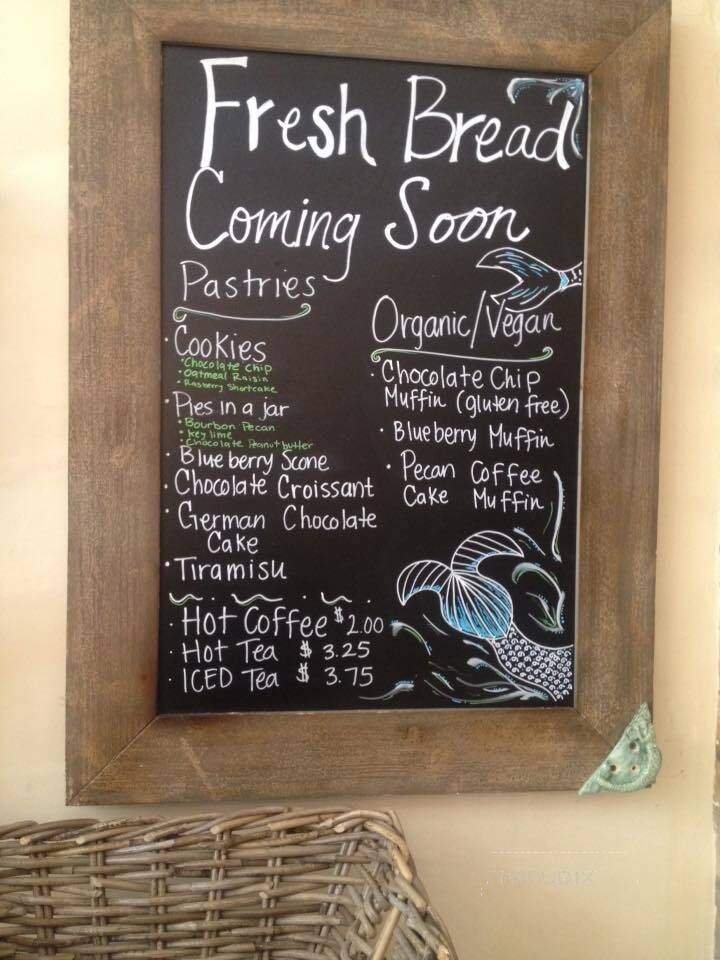 Fresh Bread
Coming Soon
Pastries
· Cookies
• Chocolate chip
• Oatmeal Raisin
• Rasberry Shortcake
· Pies in a jar
• Bourbon Pecan
• key lime
• Chocolate Peanut butter
· Blueberry Scone
· Chocolate Croissant
· German Chocolate
Cake
· Tiramisu
Organic/Vegan
· Chocolate Chip
Muffin (gluten free)
· Blueberry Muffin
· Pecan Coffee
Cake Muffin
· Hot Coffee $2.00
· Hot Tea $ 3.25
· ICED Tea $ 3.75